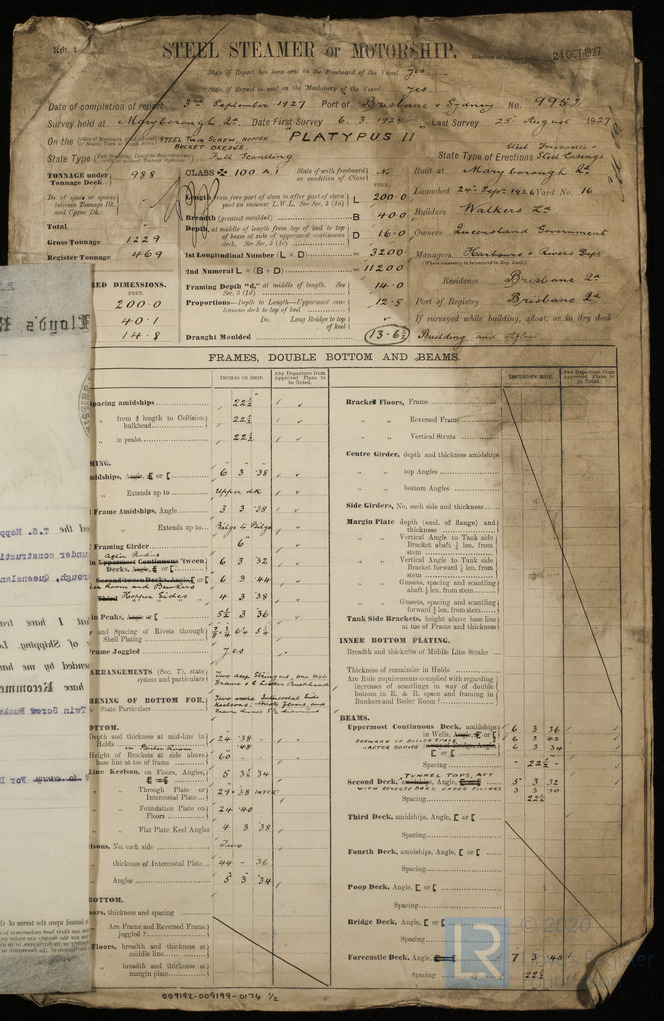 Rpt. 1.
STEEL STEAMER or MOTORSHIP.
24 OCT 1927
State if Report has been sent on the Freeboard of the Vessel yes
State if Report is sent on the Machinery of the Vessel yes
Date of completion of report 3rd September 1927 Port of Brisbane & Sydney No. 995
Survey held at Maryborough, Qd. Date First Survey 6. 3. 1925 Last Survey 25th August 1927
On the STEEL TWIN SCREW, HOPPER "PLATYPUS II"
BUCKET DREDGE.
State Type Full Scantling State Type of Erections Steel Forecastle &
Steel Casings
TONNAGE under Tonnage Deck 988
Do. of space or spaces between Tonnage Dk. and Upper Dk. -
Total
Gross Tonnage 1229
Register Tonnage 469
CLASS ✠ 100 A 1 State if with freeboard as condition of Class No
FEET.
Length from fore part of stem to after part of stern post on summer L.W.L. See Sec. 3 (1a) L 200.0
Breadth (greatest moulded) B 40.0
Depth, at middle of length, from top of keel to top of beam at side of uppermost continuous deck. See Sec. 3 (1c) D 16.0
1st Longitudinal Number (L × D) = 3200
2nd Numeral L × (B + D) = 11200
Framing Depth "d," at middle of length. See 14.0
Proportions—Depth to Length—Uppermost continuous deck to top of keel 12.5
Do. Long Bridge to top of keel
Draught Moulded 13-6½
Built at Maryborough Qd
Launched 24th Sept 1926 Yard No. 16
Builders Walkers Ld
Owners Queensland Government
Managers Harbours & Rivers Dept
Residence Brisbane Qd
Port of Registry Brisbane Qd
If surveyed while building, afloat, or in dry dock
Building and afloat
RED DIMENSIONS.
FEET.
200.0
40.1
14.8
Lloyd's R
FRAMES, DOUBLE BOTTOM AND BEAMS.
INCHES IN SHIP. Any Departure from Approved Plans to be Noted.
spacing amidships 22½
" from ⅗ length to Collision bulkhead 22½
" in peaks 22½
MING.
midships, Angle, [ or [ 6 3 .38
" Extends up to Upper dk
Frame Amidships, Angle 3 3 .38
" Extends up to Bilge to Bilge
Framing Girder 6"
in Uppermost Continuous 'tween Decks, Angle, [ or [ 6 3 .32
Second 'tween Decks, Angle [ or [ 6 3 .44
Third Hopper Sides 4 3 .38
in Peaks, Angle or [ 5½ 3 .36
er and Spacing of Rivets through Shell Plating
rame Joggled yes
ARRANGEMENTS (Sec. 7), state system and particulars
HENING OF BOTTOM FOR, State Particulars
OTTOM.
Depth and thickness at mid-line in Holds 24 .38
in Boiler Room .48
Height of Brackets at side above base line at toe of frame 60
Line Keelson, on Floors, Angles, [ 5 3½ .34
" Through Plate or Intercostal Plate 24 .38 INTER
" Foundation Plate on Floors 24 .40
" Flat Plate Keel Angles 4 3 .38
sons, No. each side Two
" thickness of Intercostal Plate 44 - .36
" Angles 5 3 .34
BOTTOM.
ors, thickness and spacing
Are Frame and Reversed Frame joggled?
Floors, breadth and thickness at middle line
" breadth and thickness at margin plate
INCHES IN SHIP. Any Departure from Approved Plans to be Noted.
Bracket Floors, Frame
" " Reversed Frame
" " Vertical Struts
Centre Girder, depth and thickness amidships
" top Angles
" bottom Angles
Side Girders, No. each side and thickness
Margin Plate depth (excl. of flange) and thickness
" Vertical Angle to Tank side Bracket abaft ¼ len. from stem
" Vertical Angle to Tank side Bracket forward ¼ len. from stem
" Gussets, spacing and scantling abaft ¼ len. from stem
" Gussets, spacing and scantling forward ¼ len. from stem
Tank Side Brackets, height above base line at toe of Frame and thickness
INNER BOTTOM PLATING.
Breadth and thickness of Middle Line Strake
Thickness of remainder in Holds
Are Rule requirements complied with regarding increase of scantlings in way of double bottom in E. & B. space and framing in Bunkers and Boiler Room?
BEAMS.
Uppermost Continuous Deck, amidships in Wells, Angle, [ or [ 6 3 36
FORWARD OF BOILER SPACE 6 3 42
" AFTER BODIES 6 3 34
Spacing 22½
TUNNEL TOPS, AFT
Second Deck, amidships, Angle, 5 3 .32
WITH REVERSE BARS UNDER PILLARS 3 3 30
Spacing 22½
Third Deck, amidships, Angle, [ or [
Spacing
Fourth Deck, amidships, Angle, [ or [
Spacing
Poop Deck, Angle, [ or [
Spacing
Bridge Deck, Angle, [ or [
Spacing
Forecastle Deck, Angle, 7 3 .40
Spacing 22½
LR
© 2020
Lloyd's Register
Foundation
009192-009199-0174 ½